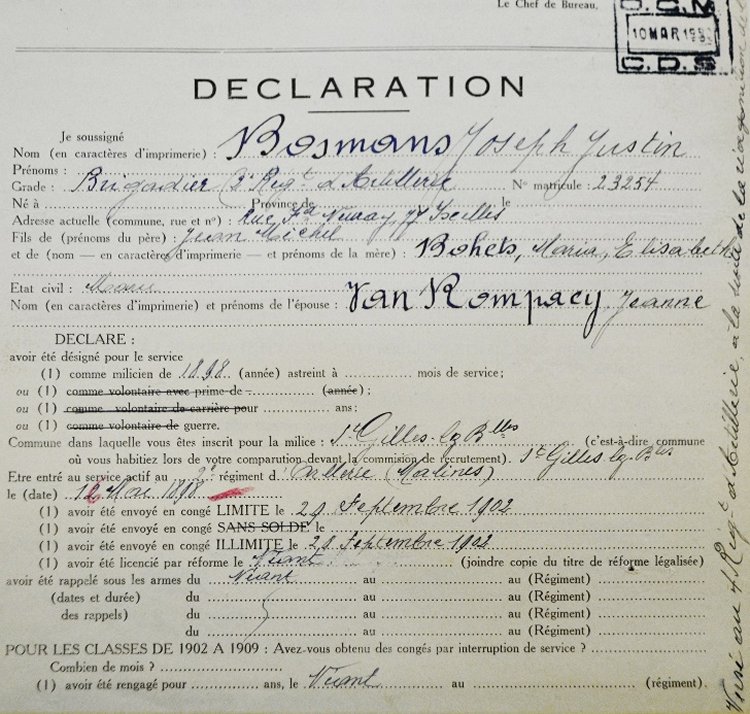 Le Chef de Bureau,
D.C.N.
10 MAR 195
C.D.S.
DECLARATION
Je soussigné
Nom (en caractères d'imprimerie) : Bosmans Joseph Justin
Prénoms :
Grade : Brigadier (3e Regt d'Artillerie N° matricule : 23254
Né à Province de le
Adresse actuelle (commune, rue et n°) : Rue Ixelles
Fils de (prénoms du père) : Jean Michel
et de (nom — en caractères d'imprimerie — et prénoms de la mère) : Bohets, Maria, Elisabeth
Etat civil : Marié
Nom (en caractères d'imprimerie) et prénoms de l'épouse : Van Rompaey Jeanne
DECLARE :
avoir été désigné pour le service
(1) comme milicien de 1898 (année) astreint à mois de service ;
ou (1) comme volontaire avec prime de - (année) ;
ou (1) comme volontaire de carrière pour ans ;
ou (1) comme volontaire de guerre.
Commune dans laquelle vous êtes inscrit pour la milice : St Gilles-lz-Blles (c'est-à-dire commune
où vous habitiez lors de votre comparution devant la commision de recrutement). St Gilles-lz-Blles
Etre entré au service actif au 2e régiment d. Artillerie (Malines)
le (date) 12 Mai 1898
(1) avoir été envoyé en congé LIMITE le 29 Septembre 1902
(1) avoir été envoyé en congé SANS SOLDE le
(1) avoir été envoyé en congé ILLIMITE le 29 Septembre 1902
(1) avoir été licencié par réforme le Néant (joindre copie du titre de réforme légalisée)
avoir été rappelé sous les armes du Néant au au (Régiment)
(dates et durée) du au au (Régiment)
des rappels) du au au (Régiment)
du au au (Régiment)
POUR LES CLASSES DE 1902 A 1909 : Avez-vous obtenu des congés par interruption de service ?
Combien de mois ?
(1) avoir été rengagé pour ans, le Néant au (régiment).
au Regt d'Artillerie, à la suite de la